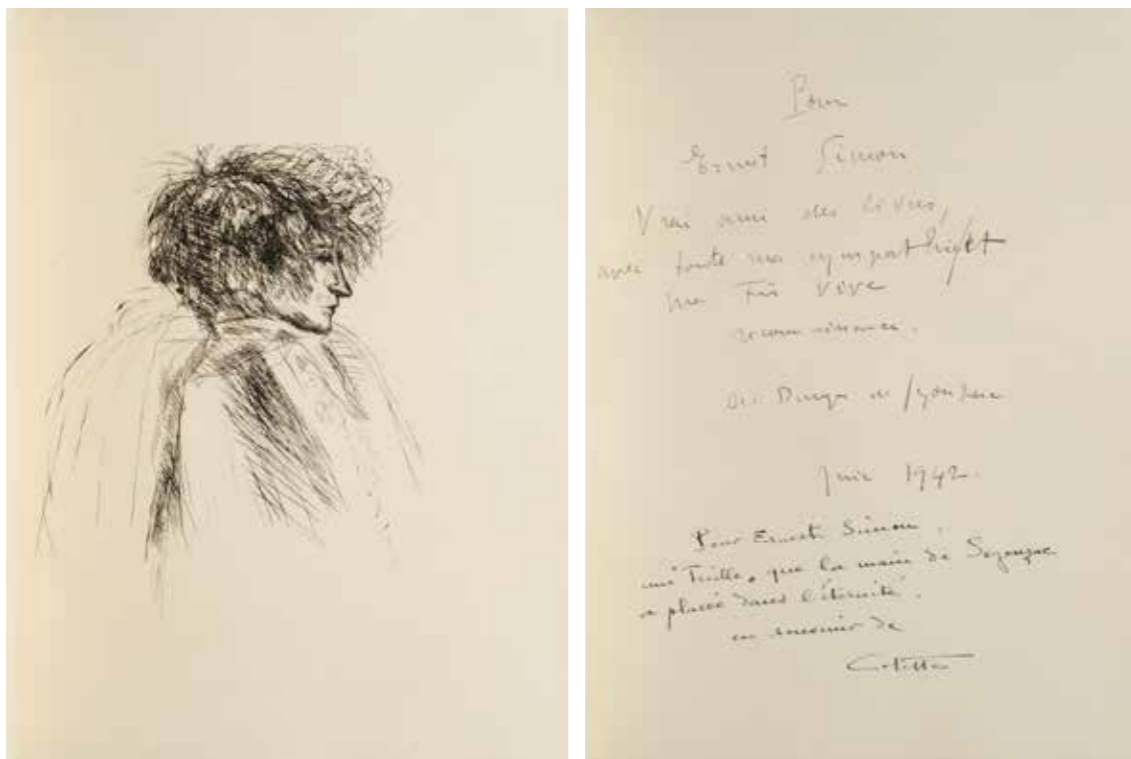 Pour
Ernest Simon
Vrai ami des livres,
avec toute ma sympathie et
ma très vive
reconnaissance.
Segonzac
Juin 1942.
Pour Ernest Simon,
une "Treille" que la main de Segonzac
a placée dans l'éternité.
en souvenir de
Colette